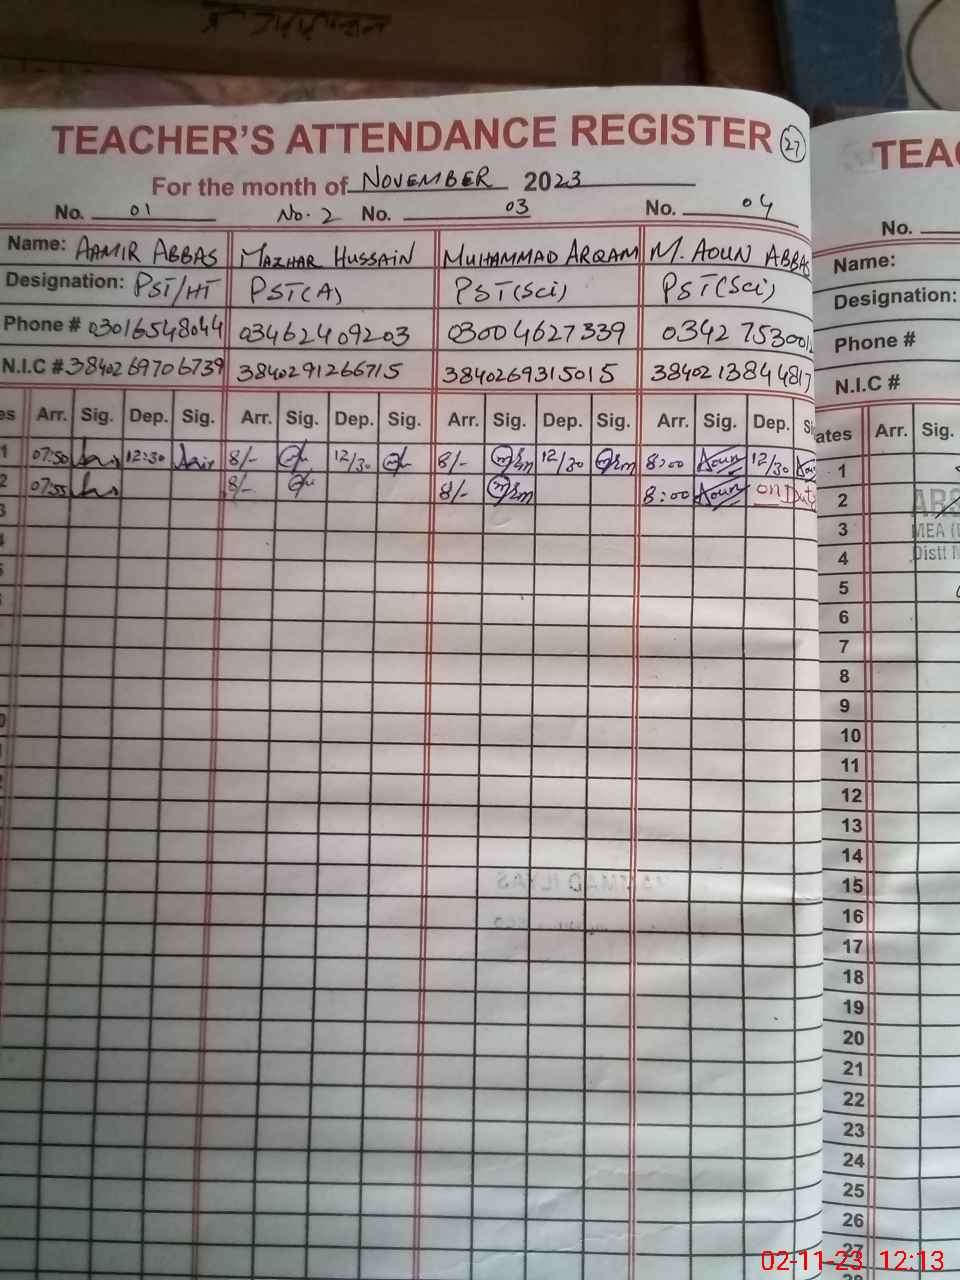 TEACHER'S ATTENDANCE REGISTER 27
For the month of NOVEMBER 2023
No. 01 No. 2 No. 03 No. 04
Name: AAMIR ABBAS MAZHAR HUSSAIN MUHAMMAD ARQAM M. AOUN ABBAS
Designation: PST/HT PST(A) PST(Sci) PST(Sci)
Phone # 03016548044 03462409203 03004627339 0342 753001
N.I.C # 3840269706739 3840291266715 3840269315015 3840213844817
es Arr. Sig. Dep. Sig. Arr. Sig. Dep. Sig. Arr. Sig. Dep. Sig. Arr. Sig. Dep. Si
1 07:50 12:30 8/- 12/30 8/- 12/30 8:00 Aoun 12/30 Aou
2 07:55 8/- 8/- 8:00 Aoun on Dut
3
TEAC
No.
Name:
Designation:
Phone #
N.I.C #
ates Arr. Sig.
1
2
3 MEA
4 Distt
5
6
7
8
9
10
11
12
13
14
15
16
17
18
19
20
21
22
23
24
25
26
27
02-11-23 12:13